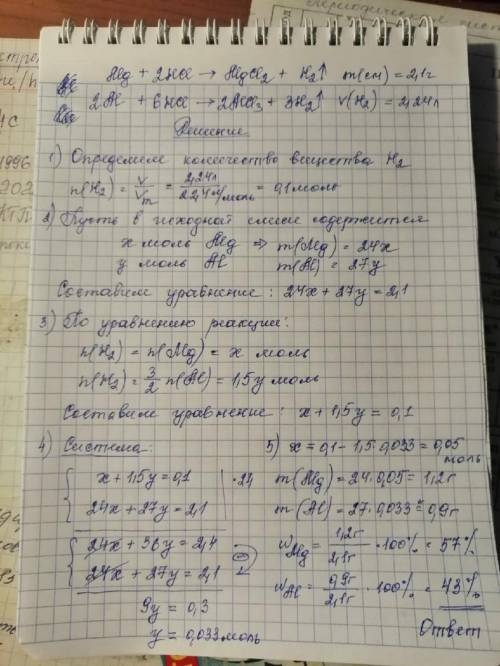 Mg + 2HCl → MgCl₂ + H₂↑ m(см) = 2,1г
2Al + 6HCl → 2AlCl₃ + 3H₂↑ V(H₂) = 2,24л
Решение
1) Определяем количество вещества H₂
n(H₂) = V/Vm = 2,24л/22,4л/моль = 0,1 моль
2) Пусть в исходной смеси содержится
x моль Mg ⇒ m(Mg) = 24x
y моль Al m(Al) = 27y
Составим уравнение: 24x + 27y = 2,1
3) По уравнению реакции:
n(H₂) = n(Mg) = x моль
n(H₂) = 3/2 n(Al) = 1,5y моль
Составим уравнение: x + 1,5y = 0,1
4) Система:
x + 1,5y = 0,1 | ·24
24x + 27y = 2,1
24x + 36y = 2,4
24x + 27y = 2,1
9y = 0,3
y = 0,033 моль
5) x = 0,1 - 1,5·0,033 = 0,05 моль
m(Mg) = 24·0,05 = 1,2г
m(Al) = 27·0,033 = 0,9г
wMg = 1,2г/2,1г · 100% = 57%
wAl = 0,9г/2,1г · 100% = 43%
Ответ